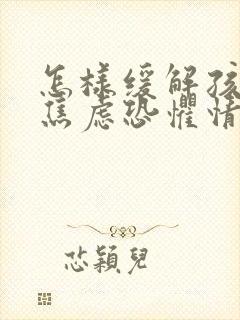 怎樣緩解孩
焦慮恐懼情
芯穎兒